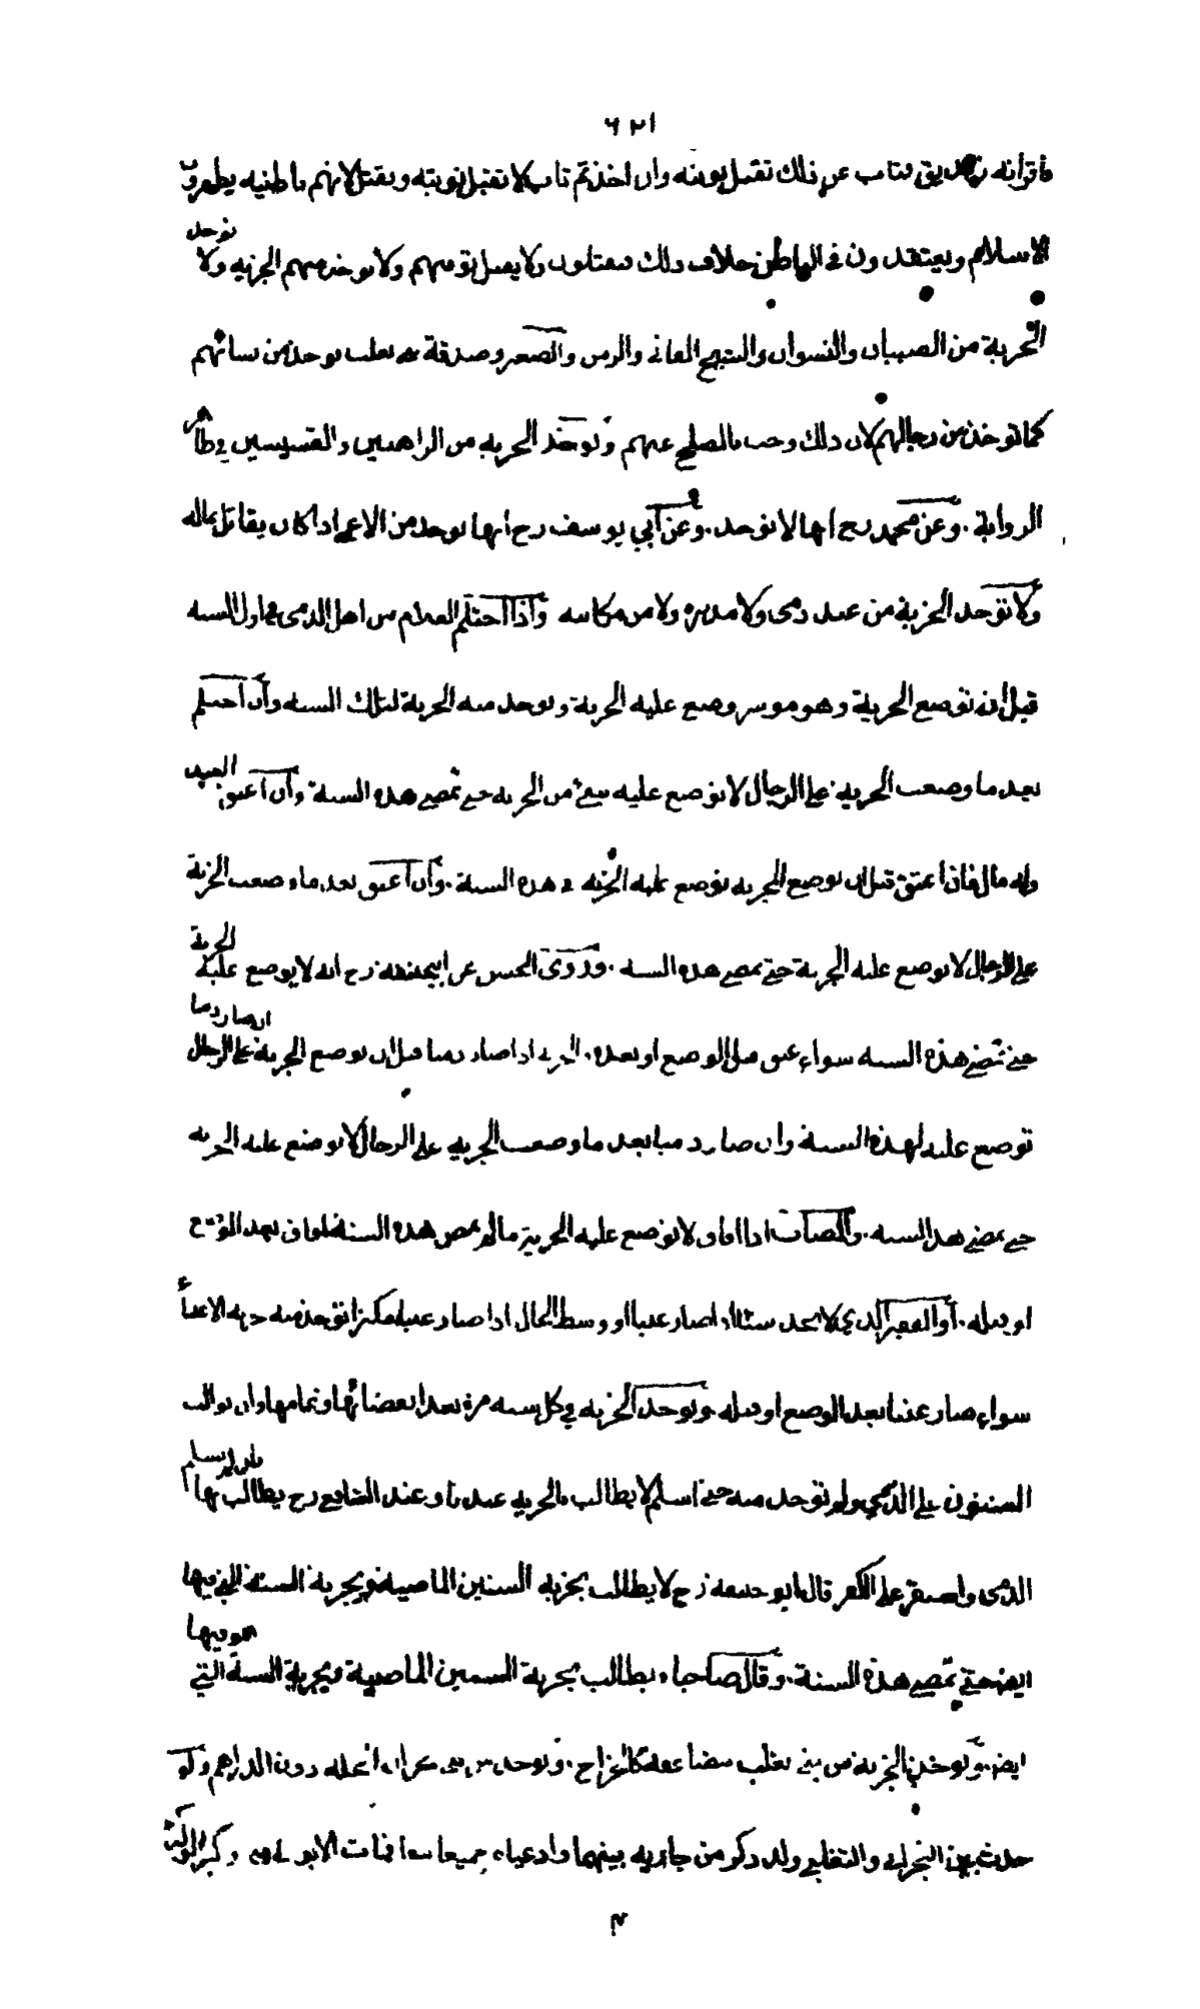 ٦٢١
فاقر أنه زنديق فتاب عن ذلك تقبل توبته وان اخذ ثم تاب لا تقبل توبته ويقتل لانهم باطنيه يظهرون
الاسلام ويعتقدون في الباطن خلاف ذلك فيقتلون ولا يقبل توبتهم ولا يوخذ منهم الجزيه ولا توخذ
الجزية من الصبيان والنسوان والشيخ الفاني والزمن والصغير وصدقة بني تغلب يوخذ من نسائهم
كما توخذ من رجالهم لان ذلك وجب بالصلح عنهم وتوخذ الجزيه من الراهبين والقسيسين في ظاهر
الرواية . وعن محمد رح انها لا توخذ . وعن أبي يوسف رح انها توخذ من الاعمى اذا كان يقاتل بماله
ولا توخذ الجزية من عبد ذمى ولا مدبره ولا من مكاتبه واذا احتلم الغلام من اهل الذمى في اول السنه
قبل ان توضع الجزية وهو موسر وضع عليه الجزية وتوخذ منه الجزية لتلك السنه وان احتلم
بعد ما وضعت الجزيه على الرجال لا توضع عليه شئ من الجزيه حتى تمضى هذه السنة وان اعتق العبد
وله مال فان اعتق قبل ان توضع الجزيه توضع عليه الجزيه في هذه السنة . وان اعتق بعد ما وضعت الجزية
على الرجال لا توضع عليه الجزية حتى تمضى هذه السنه . وروى الحسن عن ابيحنيفه رح انه لا يوضع عليه الجزية
حتى تمضى هذه السنه سواء عتق قبل الوضع او بعده . الحربى اذا صار ذميا قبل ان توضع الجزية على الرجال ان صار ذميا
توضع عليه لهذه السنة وان صار ذميا بعد ما وضعت الجزيه على الرجال لا توضع عليه الجزيه
حتى تمضى هذه السنه . والمصاب اذا افاق لا توضع عليه الجزية مالم تمض هذه السنة افاق بعد الوضع
او قبله . او الفقير الذي لا يجد شيئا اذا صار غنيا او وسط الحال اذا صار غنيا هكذا توخذ منه جزيه الاغنياء
سواء صار غنيا بعد الوضع او قبله وتوخذ الجزيه في كل سنه مرة بعد انقضائها وتمامها وان توالت
السنون على الذمي ولم توخذ منه حتى اسلم لا يطالب بالجزيه عندنا وعند الشافعي رح يطالب بها فان لم يسلم
الذمى واستقر على الكفر قال ابو حنيفه رح لا يطالب بجزيه السنين الماضية ويجزية السنة التي فيها
ايضا حتى تمضى هذه السنة . وقال صاحباه يطالب بجزية السنين الماضية وبجزية السنة التي هو فيها
ايضا . وتوخذ الجزية من بني تغلب مضاعفة كالخراج . وتوخذ من بنى نجران الحلله دون الدراهم ولو
حدث بين النجراني والتغلبي ولد ذكر من جاريه بينهما وادعياه جميعا معا فمات الابوان وكبر الولد